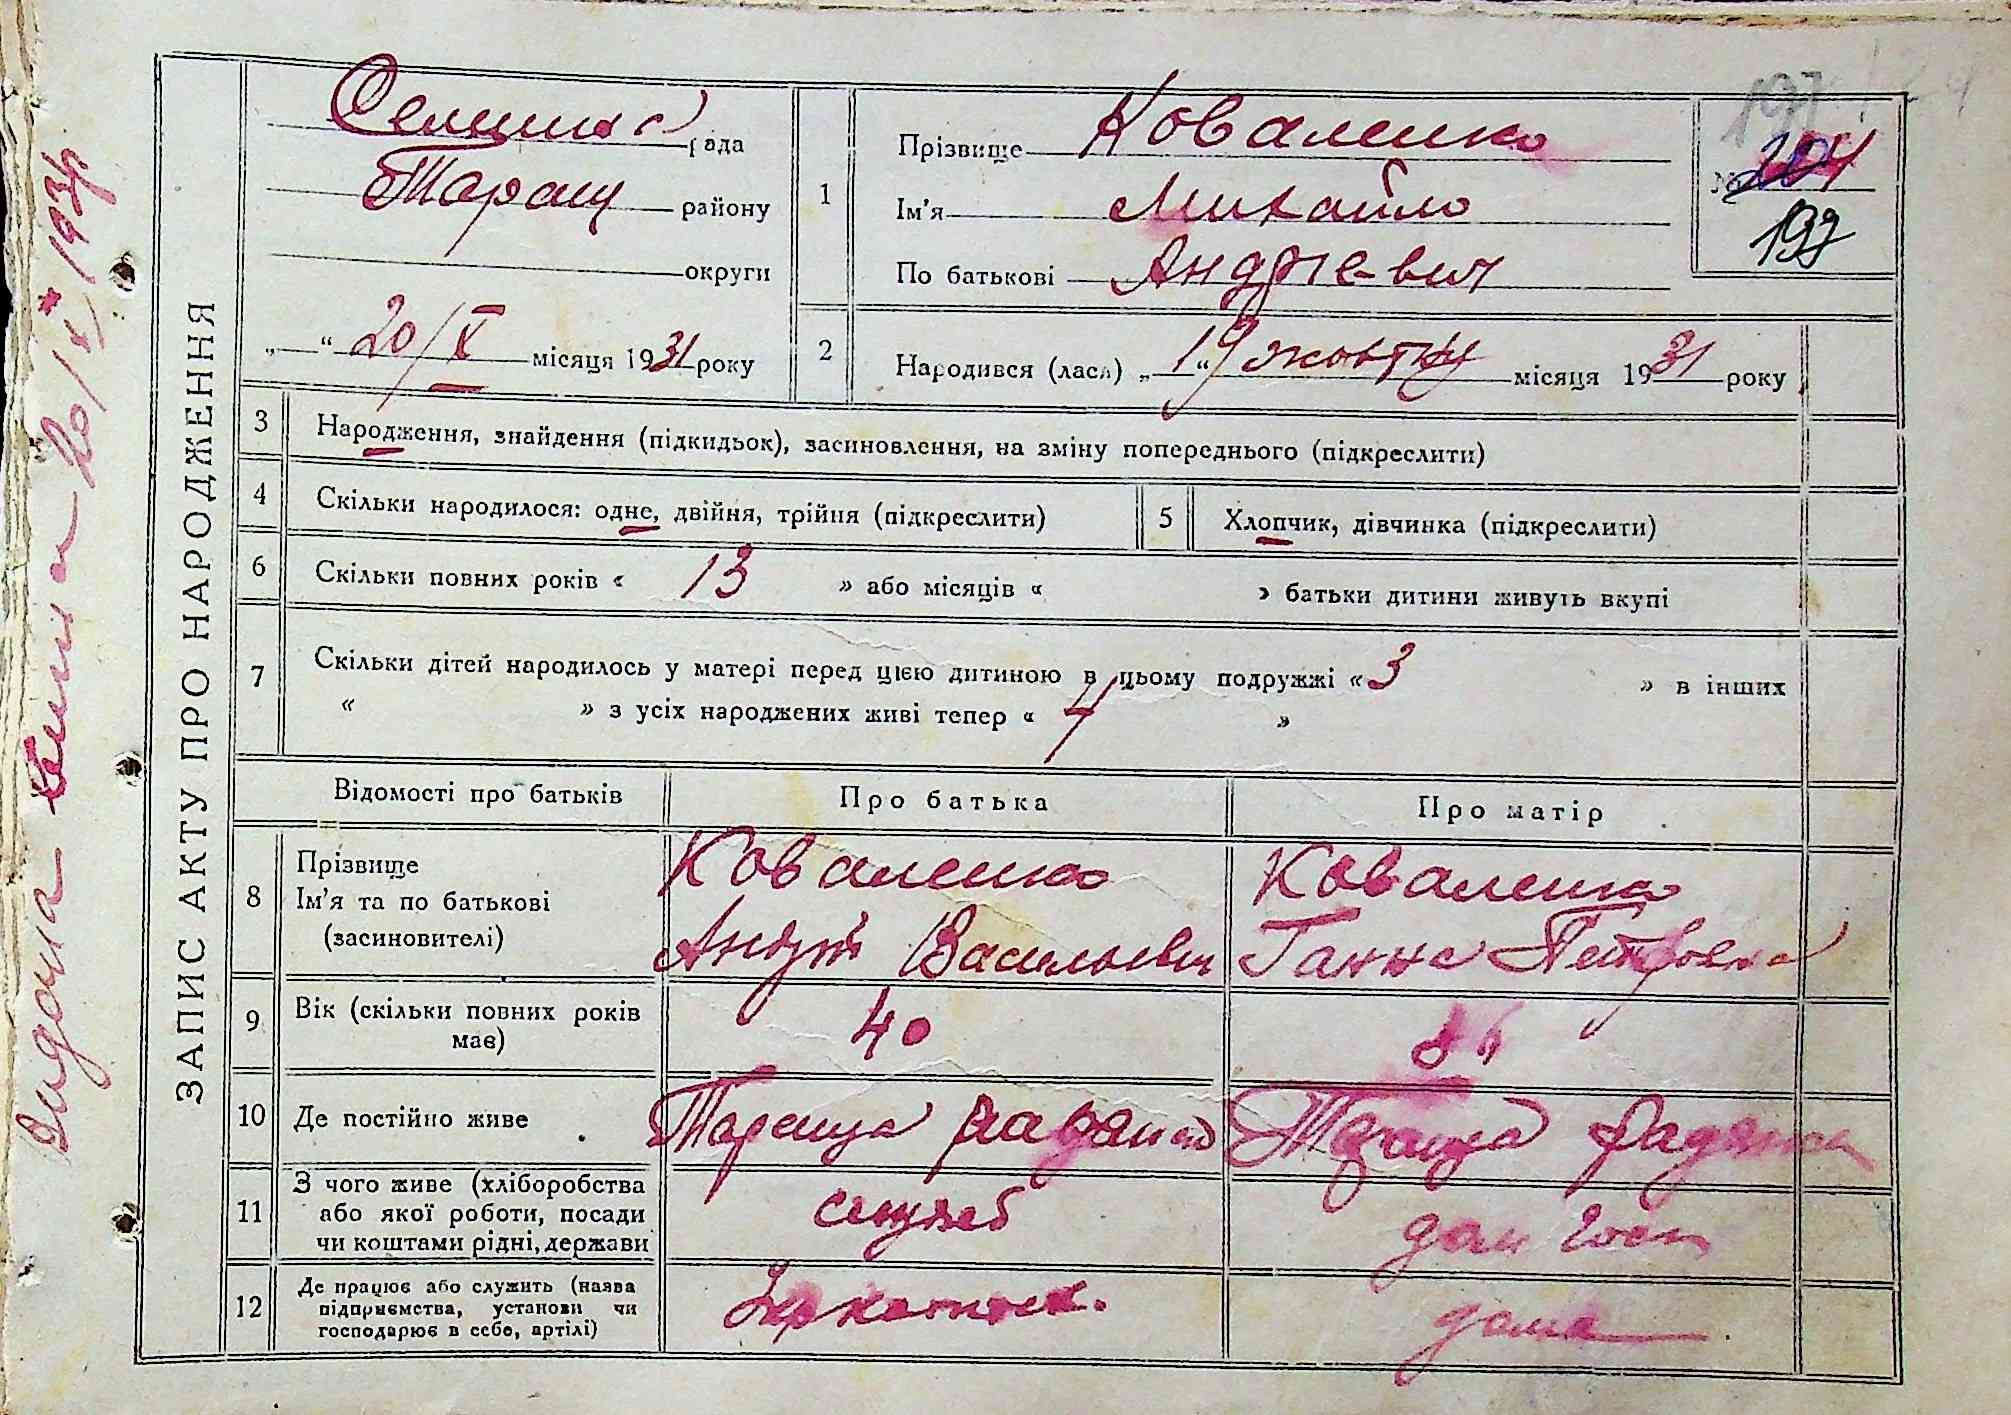 ЗАПИС АКТУ ПРО НАРОДЖЕННЯ
Видана 20/X 1931 р
Селищна рада
Таращ району
округи
„ “ 20/X місяця 1931 року
1
Прізвище Коваленко
Ім’я Михайло
По батькові Андрієвич
№ 204
197
197
2
Народився (лась) „19“ жовтня місяця 1931 року
3
Народження, знайдення (підкидьок), засиновлення, на зміну попереднього (підкреслити)
4
Скільки народилося: одне, двійня, трійня (підкреслити)
5
Хлопчик, дівчинка (підкреслити)
6
Скільки повних років « 13 » або місяців « » батьки дитини живуть вкупі
7
Скільки дітей народилось у матері перед цією дитиною в цьому подружжі « 3 » в інших
« » з усіх народжених живі тепер « 4 »
Відомості про батьків
Про батька
Про матір
8
Прізвище
Ім’я та по батькові
(засиновителі)
Коваленко
Андрій Васильович
Коваленко
Ганна Петровна
9
Вік (скільки повних років
має)
40
10
Де постійно живе
Тараща
Тараща
11
З чого живе (хліборобства
або якої роботи, посади
чи коштами рідні, держави
служб
дом госп
12
Де працює або служить (назва
підприємства, установи чи
господарює в себе, артілі)
дома